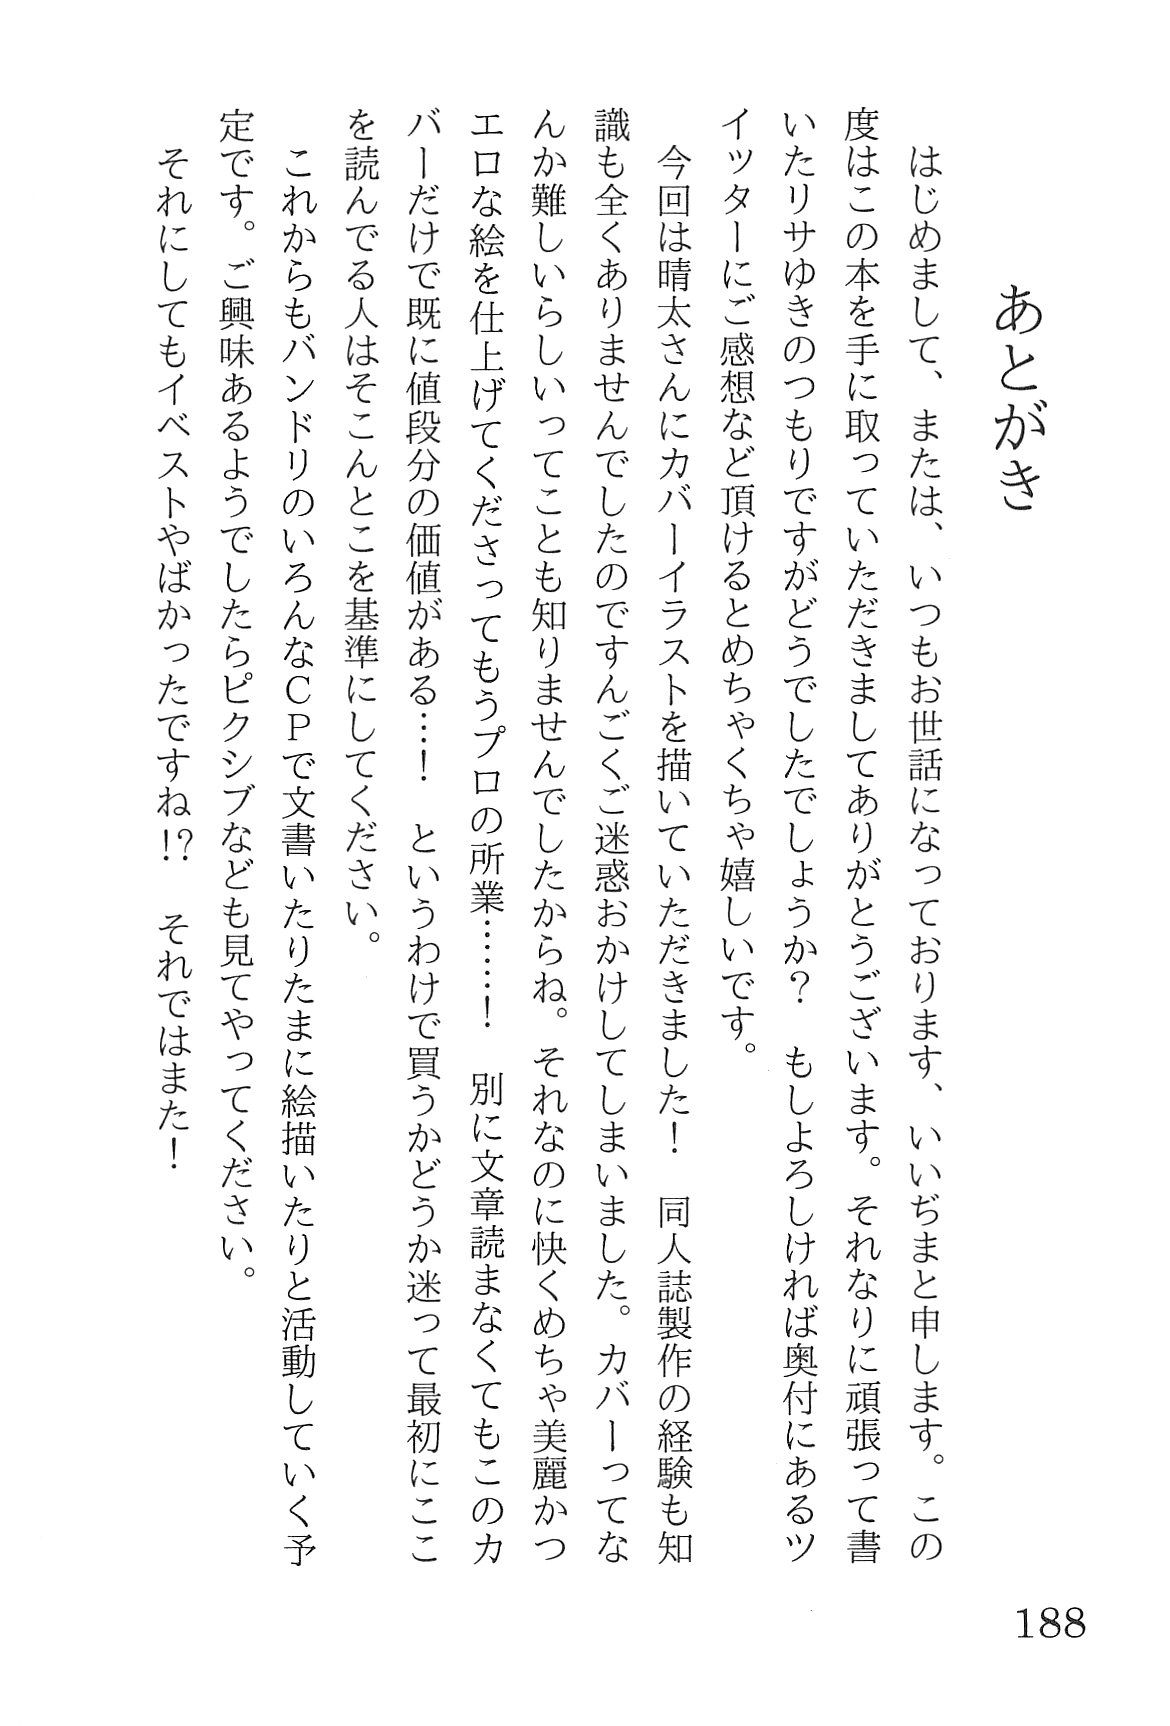 あとがき
はじめまして、または、いつもお世話になっております、いいぢまと申します。この
度はこの本を手に取っていただきましてありがとうございます。それなりに頑張って書
いたリサゆきのつもりですがどうでしたでしょうか？　もしよろしければ奥付にあるツ
イッターにご感想など頂けるとめちゃくちゃ嬉しいです。
今回は晴太さんにカバーイラストを描いていただきました！　同人誌製作の経験も知
識も全くありませんでしたのですんごくご迷惑おかけしてしまいました。カバーってな
んか難しいらしいってことも知りませんでしたからね。それなのに快くめちゃ美麗かつ
エロな絵を仕上げてくださってもうプロの所業……！　別に文章読まなくてもこのカ
バーだけで既に値段分の価値がある…！　というわけで買うかどうか迷って最初にここ
を読んでる人はそこんとこを基準にしてください。
これからもバンドリのいろんなＣＰで文書いたりたまに絵描いたりと活動していく予
定です。ご興味あるようでしたらピクシブなども見てやってください。
それにしてもイベストやばかったですね!?　それではまた！
188